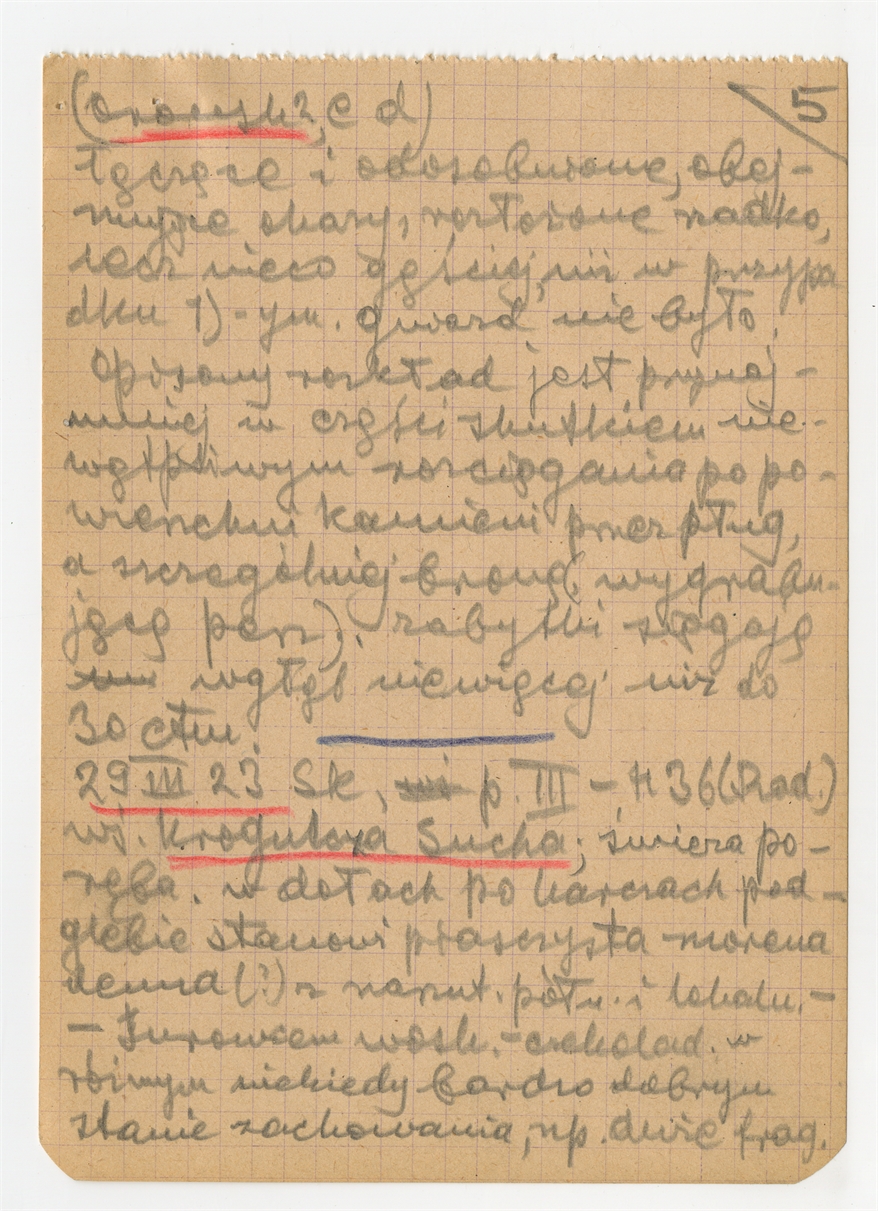 (Orońsk 2, c d) 5
łączące i odosobnione, obej-
mujące okazy, rozłożone rzadko,
lecz nieco gęściej, niż w przypa
dku 1)-ym. gwazd nie było.
Opisany rozkład jest przynaj-
mniej w części skutkiem nie-
wątpliwym rozciągania po po-
wierzchni kamieni przez pług,
a szczególniej bronę (wygrabu-
jącą perz). zabytki sięgają
wgłąb niewięcej niż do
30 ctm.
29 III 23 Sk, p. III – H 36 (Rad.)
wś. Krogulcza Sucha; świeża po-
ręba. w dołach po karczach pod-
glebie stanowi piaszczysta morena
denna (?) z narzut. półn. i lokaln. –
– Surowcem wosk.-czekolad. w
różnym niekiedy bardzo dobrym
stanie zachowania, np. dwie frag.